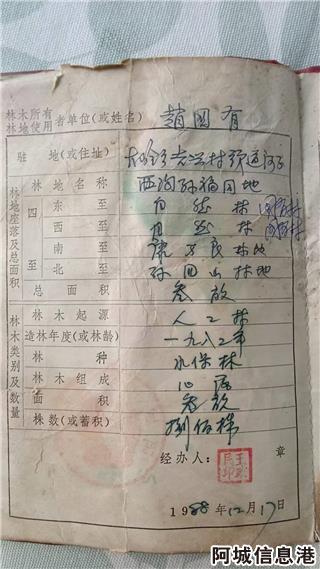 林木所有
林地使用者单位(或姓名) 趙国有
驻地(或住址) 村头道河子
林地座落及总面积
林地名称 西沟孙福田地
四至
东至 自然林
西至 自然林
南至 康万良林地
北至 孙田山林地
总面积 叁亩
林木类别及数量
林木起源 人工林
造林年度(或林龄) 一九八二年
林种 水保林
林木组成
面积 叁亩
株数(或蓄积) 捌佰株
经办人： 章
1988年12月17日
阿城信息港